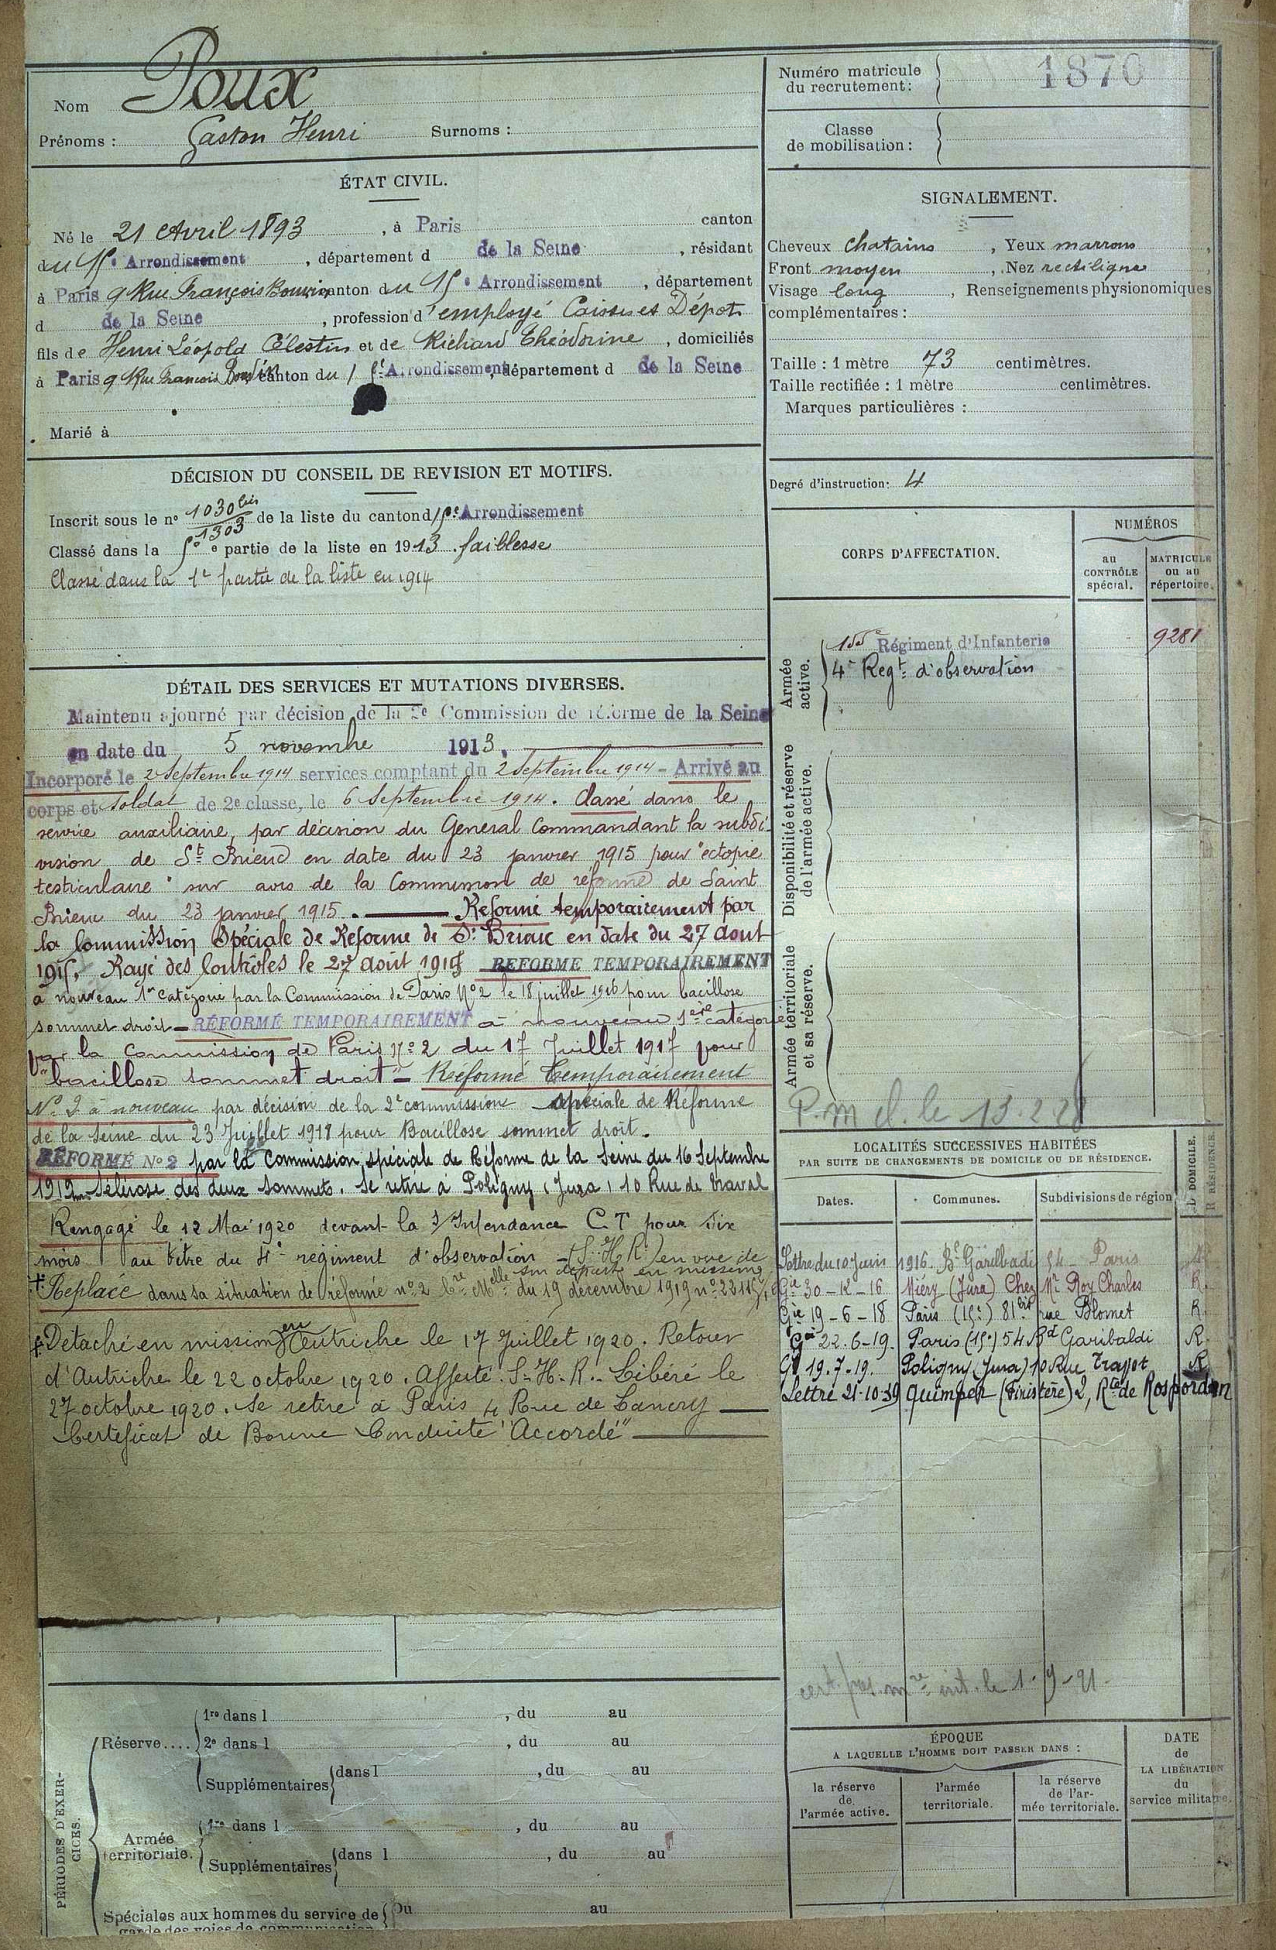 Nom Poux
Prénoms : Gaston Henri Surnoms :
ÉTAT CIVIL.
Né le 21 Avril 1893, à Paris canton
du 15e Arrondissement, département d de la Seine, résidant
à Paris 9 Rue François Bonvin canton du 15e Arrondissement, département
d de la Seine, profession d'employé Caisse et Dépot
fils de Henri Léopold Célestin et de Richard Théodorine, domiciliés
à Paris 9 Rue François Bonvin canton du 15e Arrondissement, département d de la Seine
Marié à
DÉCISION DU CONSEIL DE REVISION ET MOTIFS.
Inscrit sous le n° 1030 bis de la liste du canton d 15e Arrondissement
1303
Classé dans la 5e partie de la liste en 1913 faiblesse
Classé dans la 1e partie de la liste en 1914
DÉTAIL DES SERVICES ET MUTATIONS DIVERSES.
Maintenu ajourné par décision de la 2e Commission de réforme de la Seine
en date du 5 novembre 1913.
Incorporé le 2 Septembre 1914 services comptant du 2 Septembre 1914 - Arrivé au
corps et soldat de 2e classe, le 6 Septembre 1914. Classé dans le
service auxiliaire, par décision du Général Commandant la subdi-
vision de St Brieuc en date du 23 janvier 1915 pour "ectopie
testiculaire" sur avis de la Commission de réforme de Saint
Brieuc du 23 janvier 1915. Réformé temporairement par
la Commission Spéciale de Réforme de St Brieuc en date du 27 Août
1915. Rayé des Contrôles le 27 août 1915 RÉFORMÉ TEMPORAIREMENT
à nouveau 1re catégorie par la Commission de Paris N°2 le 18 juillet 1916 pour bacillose
sommet droit - RÉFORMÉ TEMPORAIREMENT à nouveau 1ère catégorie
par la Commission de Paris N°2 du 17 Juillet 1917 pour
"bacillose sommet droit" - Réformé Temporairement
N° 2 à nouveau par décision de la 2e commission spéciale de Réforme
de la Seine du 23 Juillet 1918 pour Bacillose sommet droit.
RÉFORMÉ N° 2 par la Commission spéciale de Réforme de la Seine du 16 Septembre
1919 Sclérose des deux sommets. Se retire à Poligny (Jura) 10 Rue de
Rengagé le 12 Mai 1920 devant la S/Intendance C.T pour six
mois au titre du 4e régiment d'observation (S.H.R.) en vue de
son départ en mission
Replacé dans sa situation de réformé n°2 Cre Mlle du 19 décembre 1919 n°
Détaché en mission en Autriche le 17 Juillet 1920. Retour
d'Autriche le 22 octobre 1920. Affecté S.H.R. Libéré le
27 octobre 1920. Se retire à Paris 4 Rue de Lancry
Certificat de Bonne Conduite "Accordé"
PÉRIODES D'EXER-
CICES.
Réserve....
1re dans l , du au
2e dans l , du au
Supplémentaires dans l , du au
Armée
territoriale.
1re dans l , du au
Supplémentaires dans l , du au
Spéciales aux hommes du service de Du au
garde des voies de communication
Numéro matricule
du recrutement: 1870
Classe
de mobilisation :
SIGNALEMENT.
Cheveux chatains, Yeux marrons,
Front moyen, Nez rectiligne
Visage long, Renseignements physionomiques
complémentaires :
Taille : 1 mètre 73 centimètres.
Taille rectifiée : 1 mètre centimètres.
Marques particulières :
Degré d'instruction: 4
CORPS D'AFFECTATION.
NUMÉROS
au
CONTRÔLE
spécial.
MATRICULE
ou au
répertoire.
Armée
active.
155e Régiment d'Infanterie 9281
4e Regt d'observation
Disponibilité et réserve
de l'armée active.
Armée territoriale
et sa réserve.
P.m d. le 13.2.28
LOCALITÉS SUCCESSIVES HABITÉES
PAR SUITE DE CHANGEMENTS DE DOMICILE OU DE RÉSIDENCE.
Dates. Communes. Subdivisions de région. D. DOMICILE.
R. RÉSIDENCE.
Lettre du 10 Juin 1916. Bd Garibaldi 54 - Paris R.
Gie 30-12-16 Miéry (Jura) Chez Mr Roy Charles R.
Gie 19-6-18 Paris (15e) 81 bis rue Blomet R.
Gie 22.6-19. Paris (15e) 54 Bd Garibaldi R.
Gie 19.7-19. Poligny (Jura) 10 Rue Travot R
Lettre 21-10-39 Quimper (Finistère) 2, Rte de Rosporden
le 1-9-91.
ÉPOQUE
A LAQUELLE L'HOMME DOIT PASSER DANS :
la réserve
de
l'armée active.
l'armée
territoriale.
la réserve
de l'ar-
mée territoriale.
DATE
de
LA LIBÉRATION
du
service militaire.